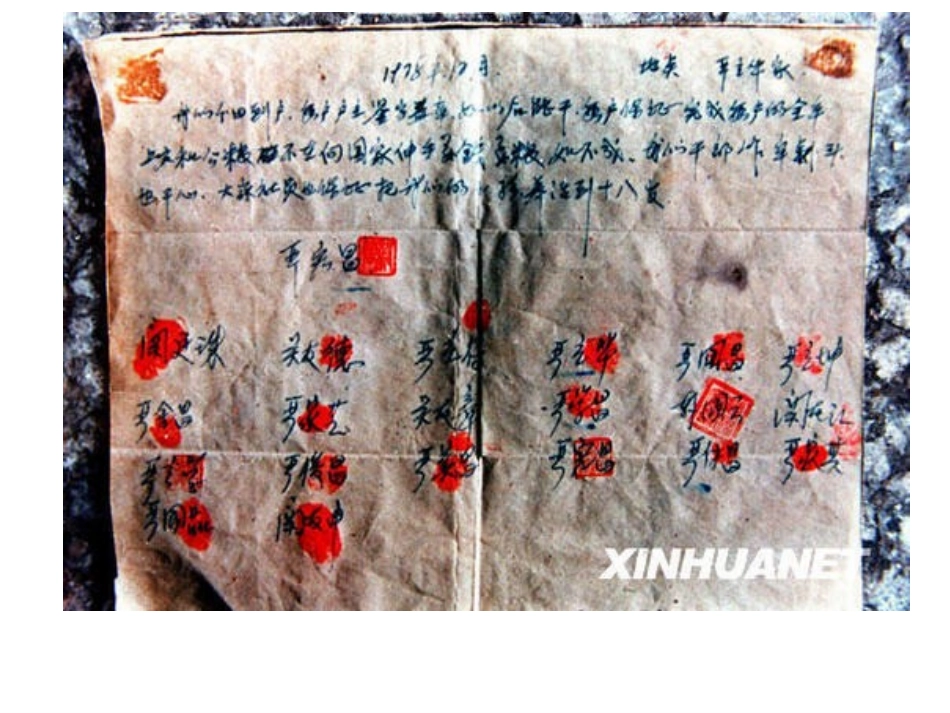 1978年12月. 地点 严立华家
我们分田到户.每户户主签字盖章.如以后能干.每户保证完成每户的全年
上交和公粮.不在向国家伸手要钱要粮.如不成.我们干部作牢刹头
也干心.大家社员也保证把我们的小孩养活到十八岁
严宏昌
关友德 严立华 严国昌 严立坤
严金昌 严家芝 关友章 严学昌 韩国云 关友江
严立学 严俊昌 严美昌 严宏昌 严付昌 严家其
严国品 关友申
XINHUANET